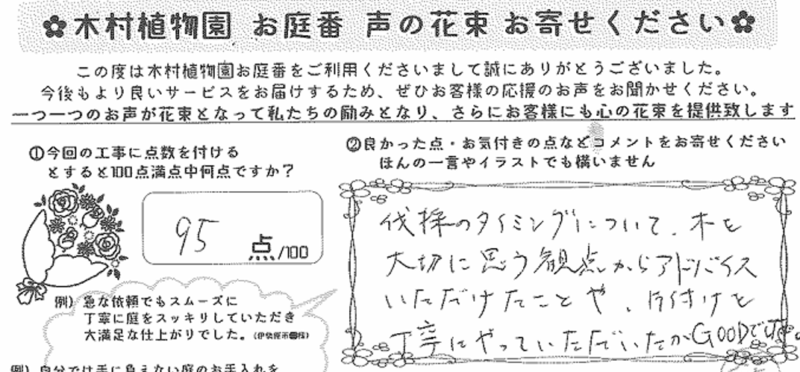 ✿木村植物園 お庭番 声の花束 お寄せください✿
この度は木村植物園お庭番をご利用くださいまして誠にありがとうございました。
今後もより良いサービスをお届けするため、ぜひお客様の応援のお声をお聞かせください。
一つ一つのお声が花束となって私たちの励みとなり、さらにお客様にも心の花束を提供致します
①今回の工事に点数を付ける
とすると100点満点中何点ですか？
95 点/100
例）急な依頼でもスムーズに
丁寧に庭をスッキリしていただき
大満足な仕上がりでした。（伊勢原市 様）
例）自分では手に負えない庭のお手入れを
②良かった点・お気付きの点などコメントをお寄せください
ほんの一言やイラストでも構いません
伐採のタイミングについて、木を
大切に思う観点からアドバイス
いただけたことや、片付けを
丁寧にやっていただいたかGOODです